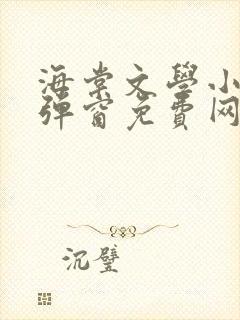 海棠文學小
彈窗免費网
沉璧